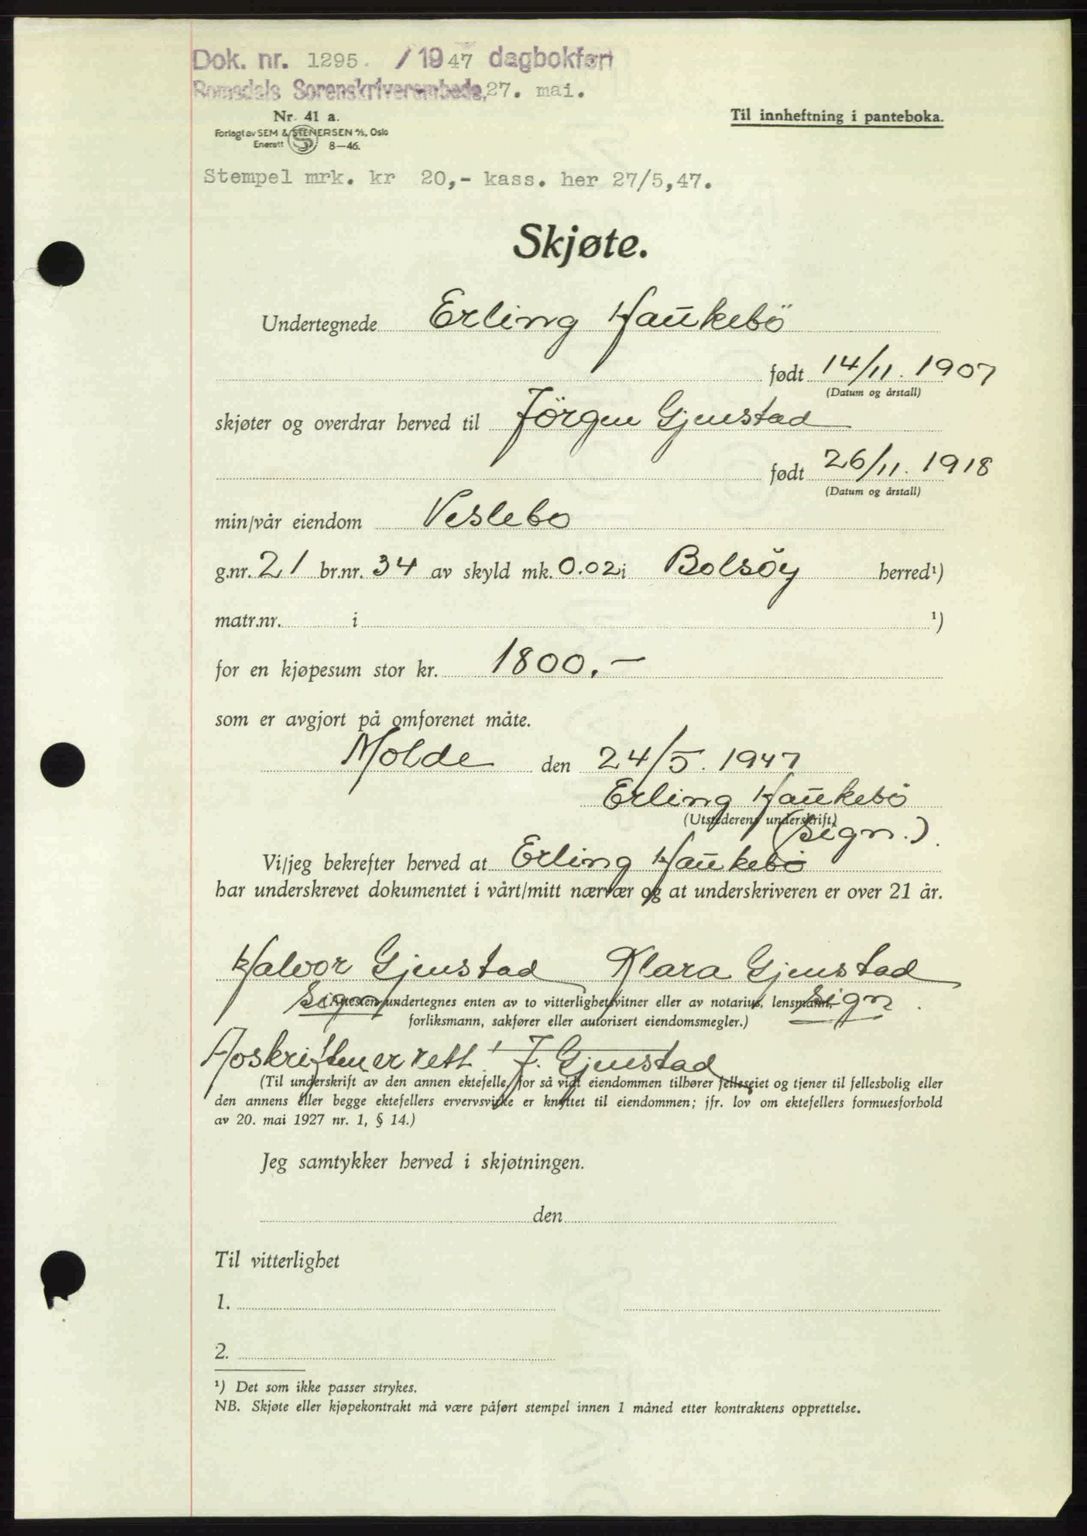 Dok. nr. 1295. / 1947 dagbokført
Romsdals Sorenskriverembede, 27. mai.
Nr. 41 a.
Forlagt av SEM & STENERSEN A/S, Oslo
Enerett 8-46.
Til innheftning i panteboka.
Stempel mrk. kr 20,- kass. her 27/5,47.
Skjøte.
Undertegnede Erling Haukebö
født 14/11. 1907
(Datum og årstall)
skjøter og overdrar herved til Jörgen Gjenstad
født 26/11. 1918
(Datum og årstall)
min/vår eiendom Veslebo
g.nr. 21 br.nr. 34 av skyld mk. 0.02 i Bolsöy herred¹)
matr.nr. i ¹)
for en kjøpesum stor kr. 1800.-
som er avgjort på omforenet måte.
Molde den 24/5. 1947
Erling Haukebö
(Utstederens underskrift)
(Sign.).
Vi/jeg bekrefter herved at Erling Haukebö
har underskrevet dokumentet i vårt/mitt nærvær og at underskriveren er over 21 år.
Halvor Gjenstad Klara Gjenstad
Sign. Sign.
(Attesten undertegnes enten av to vitterlighetsvitner eller av notarius, lensmann,
forliksmann, sakfører eller autorisert eiendomsmegler.)
Avskriften er rett! J. Gjenstad
(Til underskrift av den annen ektefelle, for så vidt eiendommen tilhører felleseiet og tjener til fellesbolig eller
den annens eller begge ektefellers ervervsvirke er knyttet til eiendommen; jfr. lov om ektefellers formuesforhold
av 20. mai 1927 nr. 1, § 14.)
Jeg samtykker herved i skjøtningen.
den
Til vitterlighet
1.
2.
¹) Det som ikke passer strykes.
NB. Skjøte eller kjøpekontrakt må være påført stempel innen 1 måned etter kontraktens opprettelse.